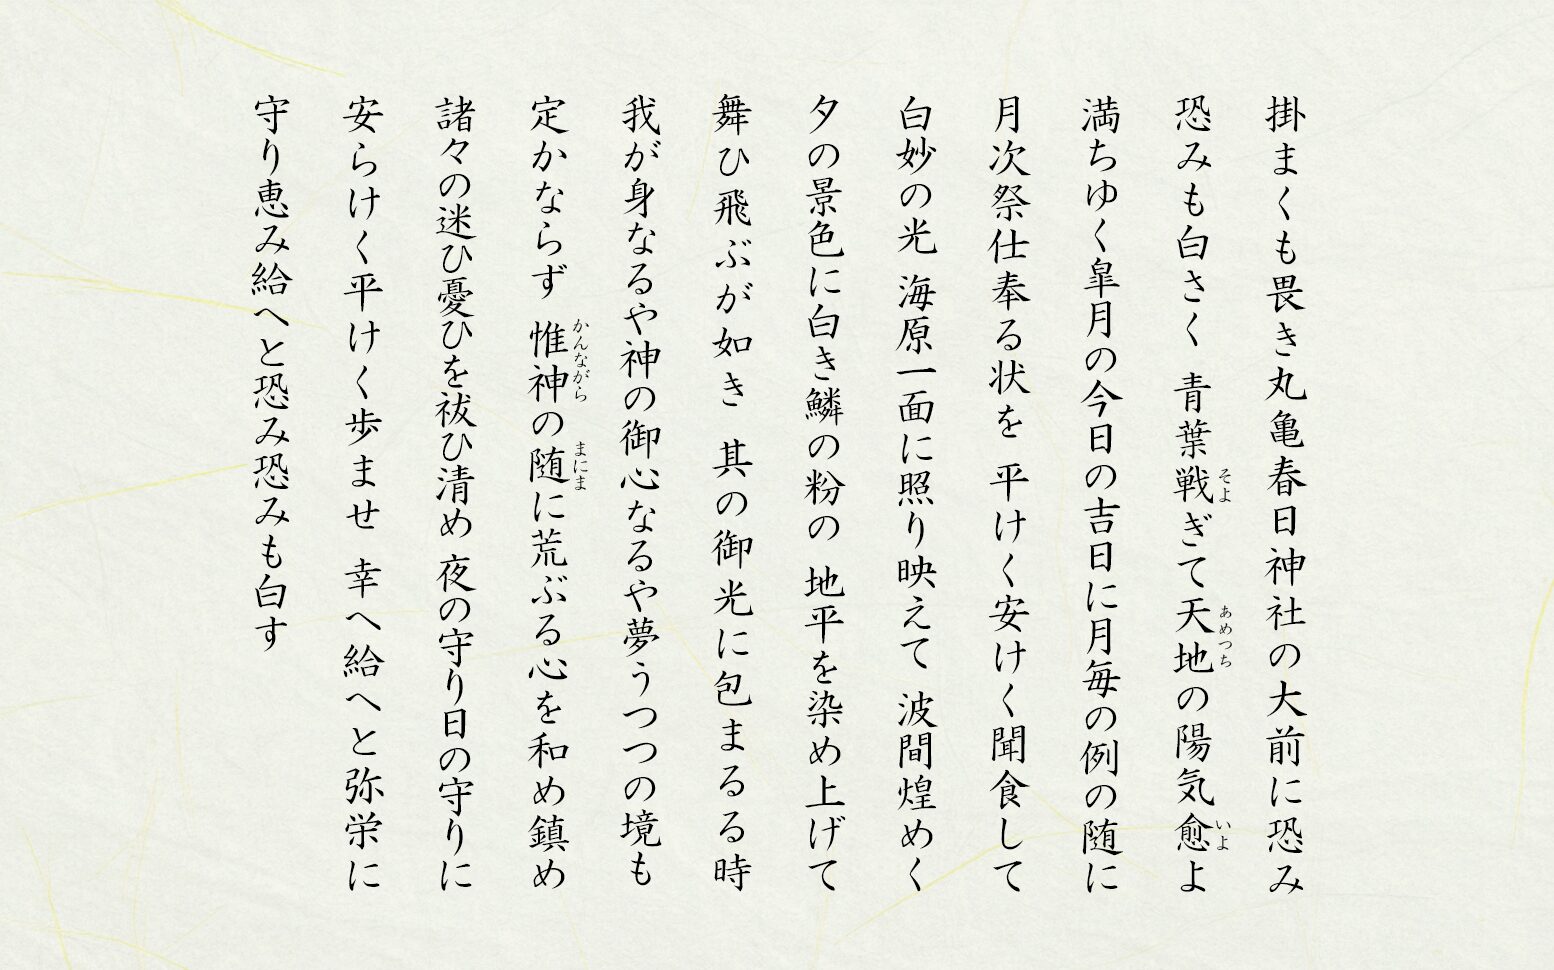 掛まくも畏き丸亀春日神社の大前に恐み
恐みも白さく 青葉戦ぎて天地の陽気愈よ
そよ
あめつち
いよ
満ちゆく皐月の今日の吉日に月毎の例の随に
月次祭仕奉る状を 平けく安けく聞食して
白妙の光 海原一面に照り映えて 波間煌めく
夕の景色に白き鱗の粉の 地平を染め上げて
舞ひ飛ぶが如き 其の御光に包まるる時
我が身なるや神の御心なるや夢うつつの境も
定かならず 惟神の随に荒ぶる心を和め鎮め
かんながら
まにま
諸々の迷ひ憂ひを祓ひ清め 夜の守り日の守りに
安らけく平けく歩ませ 幸へ給へと弥栄に
守り恵み給へと恐み恐みも白す